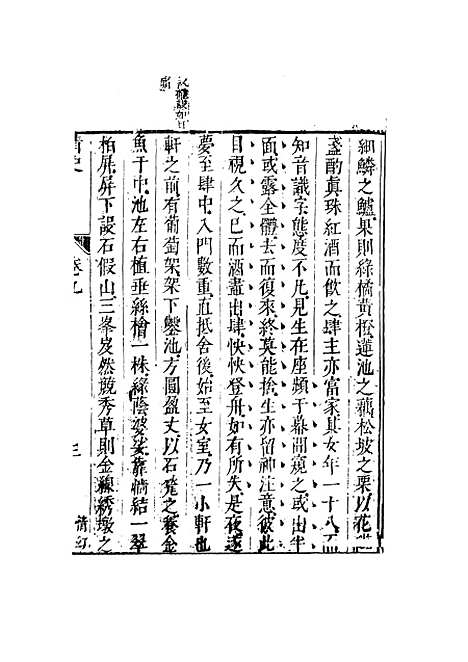 細鱗之鱸果則綠橘黃橙蓮池之藕松坡之栗以花
盞酌真珠紅酒而飲之肆主亦富家其女年一十八而
知音識字態度不凡見生在座頻于幕間窺之或出半
面或露全體去而復來終莫能捨生亦留神注意彼此
目視久之已而酒盡出肆怏怏登舟如有所失是夜遂
夢至肆中入門數重直抵舍後始至女室乃一小軒也
軒之前有葡萄架架下鑿池方圓盈丈以石甃之養金
魚于中池左右植垂絲檜一株綠蔭婆娑靠墻結一翠
栢屏屏下設石假山三峯岌然競秀草則金線綉墩之
情史
卷九
三